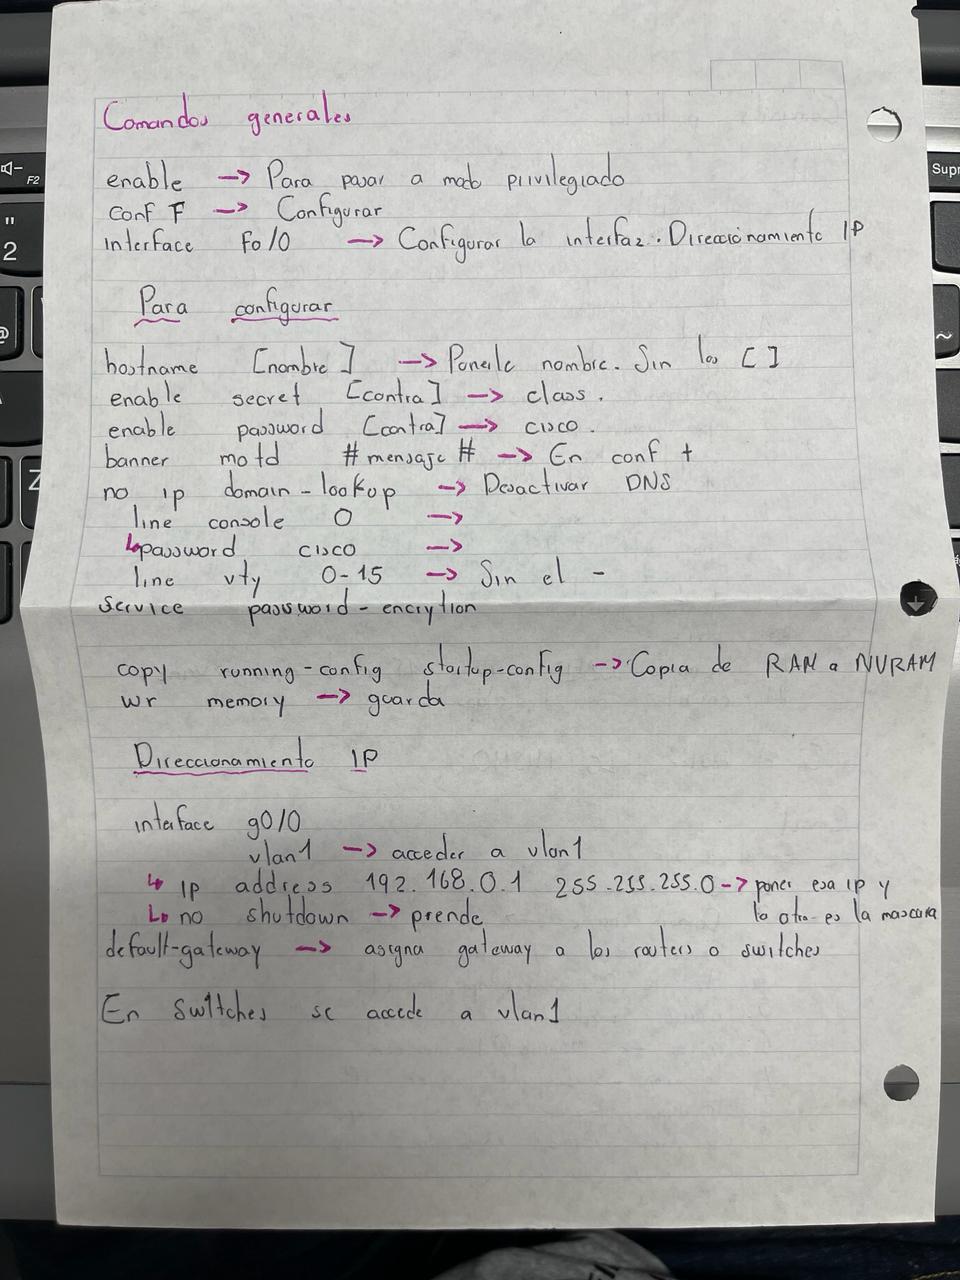 Comandos generales
enable → Para pasar a modo privilegiado
conf T → Configurar
interface fo/0 → Configurar la interfaz. Direccionamiento IP
Para configurar
hostname [nombre] → Ponerle nombre. Sin los []
enable secret [contra] → class.
enable password [contra] → cisco.
banner motd #mensaje# → En conf t
no ip domain-lookup → Desactivar DNS
line console 0 →
↳password cisco →
line vty 0-15 → Sin el -
service password-encrytion
copy running-config startup-config → Copia de RAM a NVRAM
wr memory → guarda
Direccionamiento IP
interface g0/0
vlan1 → acceder a vlan1
↳ ip address 192.168.0.1 255.255.255.0 → poner esa IP y
la otra es la mascara
↳ no shutdown → prende
default-gateway → asigna gateway a los routers o switches
En Switches se accede a vlan1
F2
"
2
@
Z
Supr
~